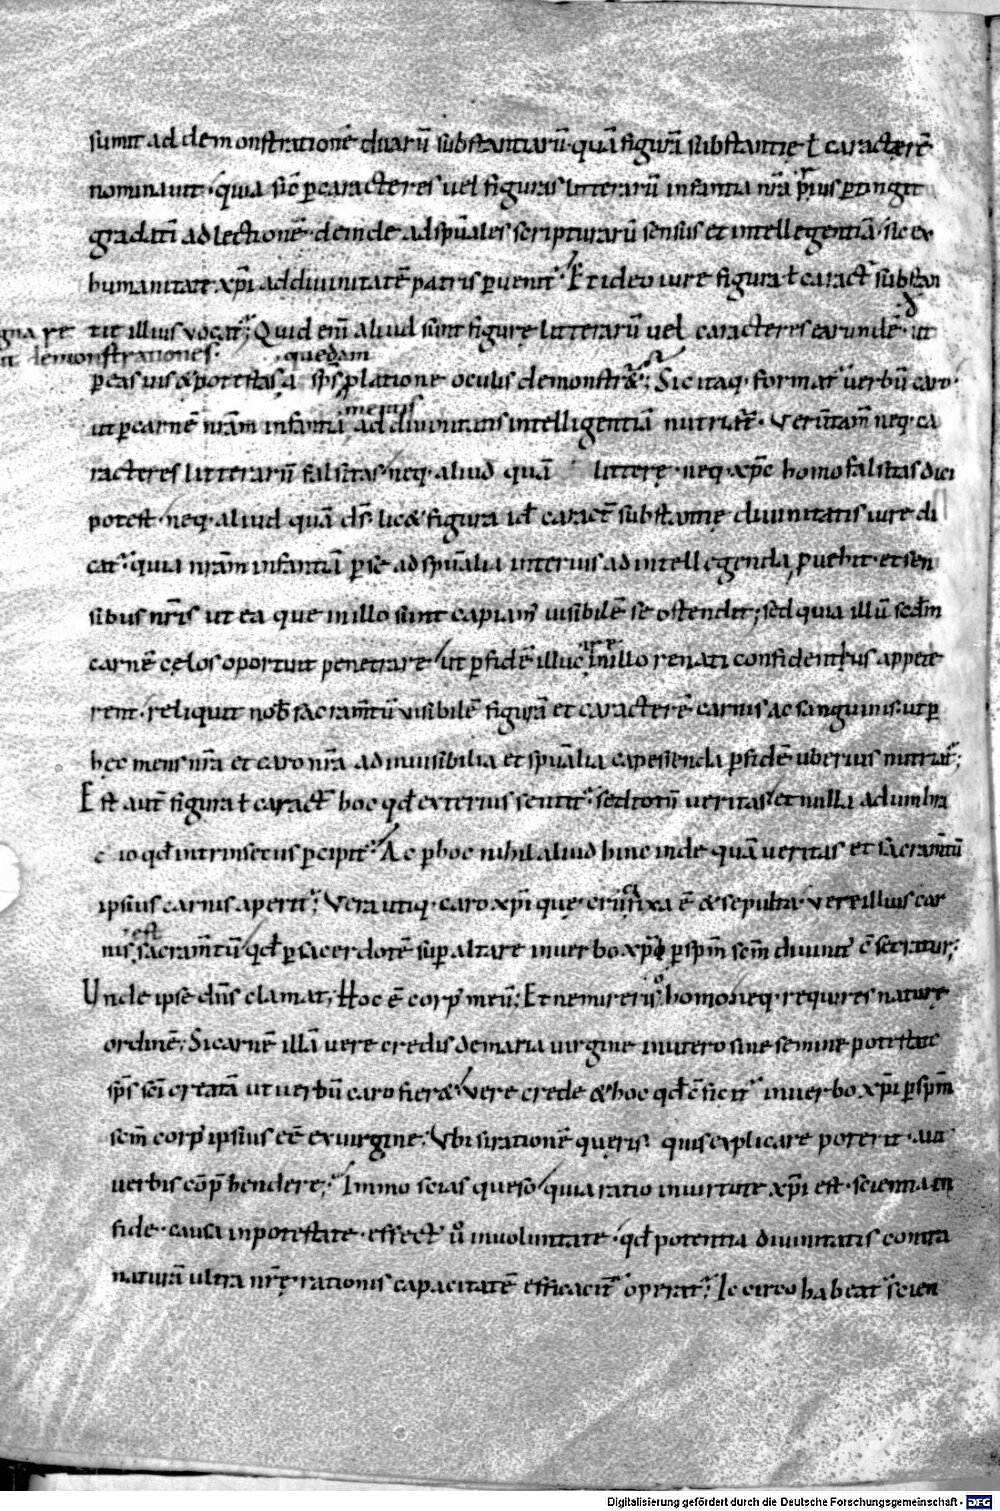 sumit ad demonstrationē duarū substantiarū· quā figurā substantię ł caracterē
nominauit· quia sic̄ ꝑ caracteres uel figuras litterarū infantia nr̄a prius ꝑtingit
gradatī ad lectionē· deinde ad spūales scripturarū sensus et intellegentiā· sic ex
humanitate xp̄i ad diuinitatē patris ꝑuenit᷑· Et ideo iure figura ł caract᷑ substan
tię illius uocat᷑; Quid em̄ aliud sunt figurę litterarū uel caracteres earundē· ut
demonstrationes· quędam
ꝑ eas uis & potestas a sp̄s ꝓlatione oculis demonstr&; Sic itaq· format᷑ uerbū caro·
mentis
ut ꝑ carnē nr̄am infantiā ad diuinitatis intelligentiā nutriat᷑· Verūtam̄ neq· ca
racteres litterarū falsitas· neq· aliud quā litterę· neq· xp̄c homo falsitas dici
potest· neq· aliud quā ds̄· lic& figura id ł caract᷑ substantię diuinitatis iure di
cat᷑· quia nr̄am infantiā ꝑ se ad spūalia interius ad intellegenda ꝓuehit· et sen
sibus nr̄is ut ea que in illo sunt capiam᷑ uisibilē se ostendit; sed quia illū scdm̄
carnē cęlos oportuit penetrare· ut ꝑ fidē illuc in illo renati confidentius appete
rent· reliquit nob̄ sacram̄tū uisibilē figurā et caracterē carnis ac sanguinis· ut ꝑ
hęc mens nr̄a et caro nr̄a ad inuisibilia et spūalia capessenda ꝑ fidē uberius nutriat᷑;
Est aut̄ figura ł caract᷑ hoc qd̄ exterius sentit᷑· sed totū ueritas· et nulla adumbra
cio qd̄ intrinsecus ꝑcipit᷑· Ac ꝑ hoc nihil aliud hinc inde quā ueritas et sacram̄tū
ipsius carnis aperit᷑; Vera utiq· caro xp̄i que crucifixa ē & sepulta· uere illius car
est
nis sacram̄tū· qd̄ ꝑ sacerdotē sup̄ altare in uerbo xp̄i ꝑ spm̄ scm̄ diuinit᷑ c̄secratur;
Unde ipse dn̄s clamat; Hoc ē corp᷑ meū; Et ne mireris o homo· neq· requires naturę
ordinē; Si carnē illā uere credis de maria uirgine in utero sine semine potestate
sp̄s sc̄i creatā ut uerbū caro fier&· Vere crede & hoc qd̄ c̄ficit᷑ in uerbo xp̄i ꝑ spm̄
scm̄ corp᷑ ipsius eē ex uirgine; Vbi si rationē queris· quis explicare poterit· aut
uerbis cōp̄hendere; Immo scias queso· quia ratio in uirtute xp̄i est· scientia in
fide· causa in potestate· effect᷑ u̅ in uoluntate· qd̄ potentia diuinitatis contra
naturā ultra nr̄ę rationis capacitatē efficacit᷑ operat᷑; Iccirco habeat᷑ scien
Digitalisierung gefördert durch die Deutsche Forschungsgemeinschaft - DFG